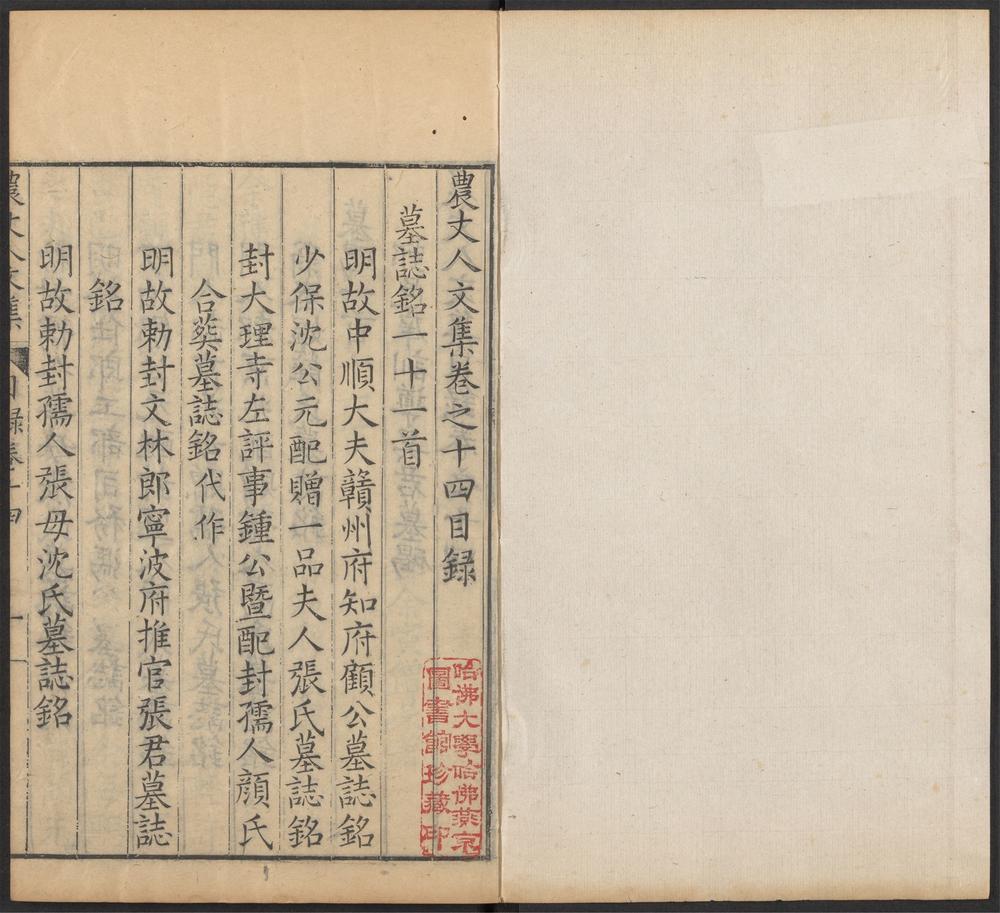 農丈人文集卷之十四目録
墓誌銘一十一首
明故中順大夫贛州府知府顧公墓誌銘
少保沈公元配贈一品夫人張氏墓誌銘
封大理寺左評事鍾公暨配封孺人顔氏
合葬墓誌銘代作
明故勅封文林郎寧波府推官張君墓誌
銘
明故勅封孺人張母沈氏墓誌銘
農丈人文集
目録卷十四
一
哈佛大學哈佛燕京
圖書館珍藏印